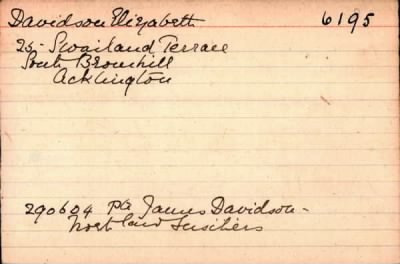 Davidson Elizabeth 6195
25 - Swailand Terrace
South Broomhill
Acklington
290604 Pte James Davidson -
North'land Fusiliers